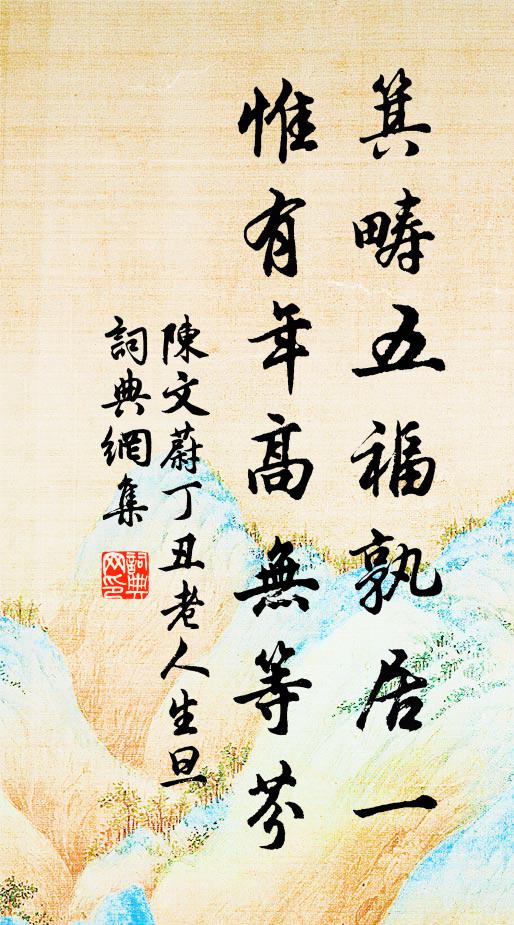 箕疇五福孰居一
惟有年高無等芬
陳文蔚丁丑老人生旦
詞典網集
詞典網印